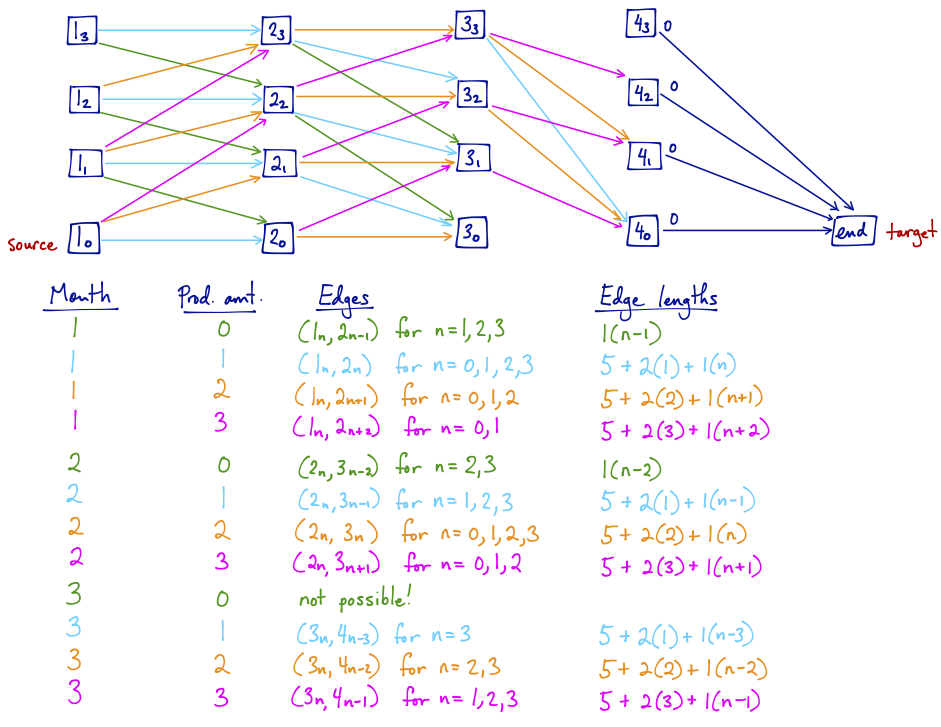 1₃ 2₃ 3₃ 4₃ 0
1₂ 2₂ 3₂ 4₂ 0
1₁ 2₁ 3₁ 4₁ 0
source 1₀ 2₀ 3₀ 4₀ 0 end target
Month Prod. amt. Edges Edge lengths
1 0 (1ₙ, 2ₙ₋₁) for n=1,2,3 1(n-1)
1 1 (1ₙ, 2ₙ) for n=0,1,2,3 5+2(1)+1(n)
1 2 (1ₙ, 2ₙ₊₁) for n=0,1,2 5+2(2)+1(n+1)
1 3 (1ₙ, 2ₙ₊₂) for n=0,1 5+2(3)+1(n+2)
2 0 (2ₙ, 3ₙ₋₂) for n=2,3 1(n-2)
2 1 (2ₙ, 3ₙ₋₁) for n=1,2,3 5+2(1)+1(n-1)
2 2 (2ₙ, 3ₙ) for n=0,1,2,3 5+2(2)+1(n)
2 3 (2ₙ, 3ₙ₊₁) for n=0,1,2 5+2(3)+1(n+1)
3 0 not possible!
3 1 (3ₙ, 4ₙ₋₃) for n=3 5+2(1)+1(n-3)
3 2 (3ₙ, 4ₙ₋₂) for n=2,3 5+2(2)+1(n-2)
3 3 (3ₙ, 4ₙ₋₁) for n=1,2,3 5+2(3)+1(n-1)